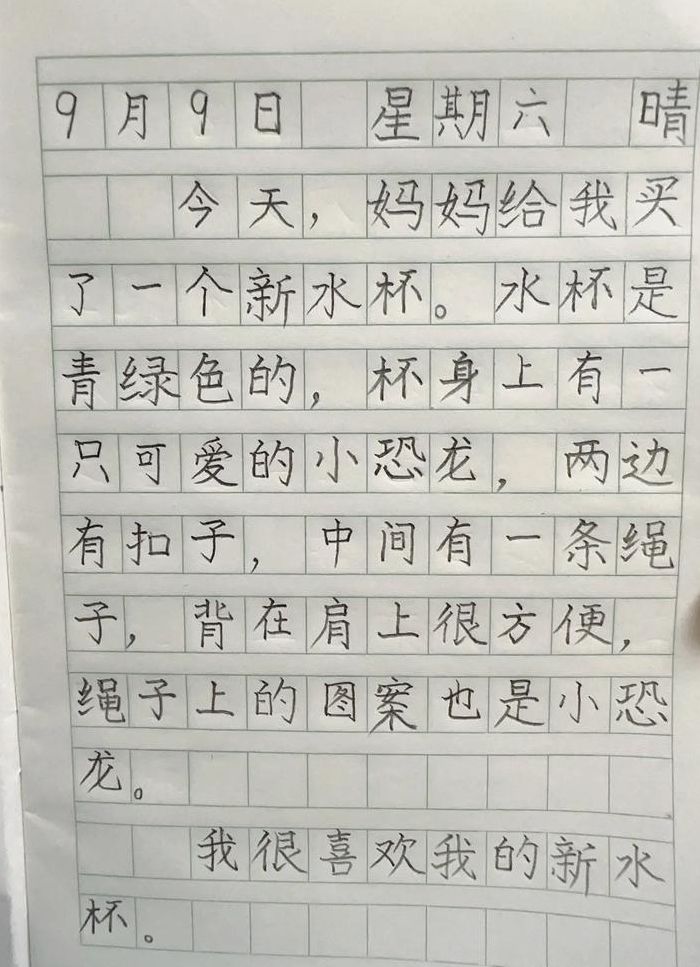 9月9日 星期六 晴
今天，妈妈给我买
了一个新水杯。水杯是
青绿色的，杯身上有一
只可爱的小恐龙，两边
有扣子，中间有一条绳
子，背在肩上很方便，
绳子上的图案也是小恐
龙。
我很喜欢我的新水
杯。